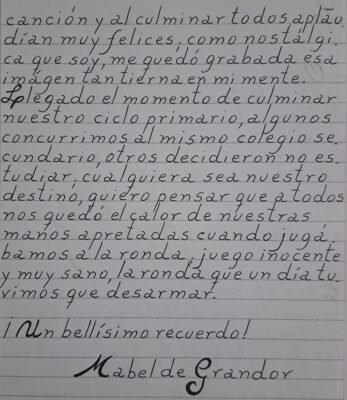 canción y al culminar todos aplau.
dían muy felices, como nostálgi.
ca que soy, me quedó grabada esa
imágen tan tierna en mi mente.
Llegado el momento de culminar
nuestro ciclo primario, algunos
concurrimos al mismo colegio se.
cundario, otros decidieron no es.
tudiar, cualquiera sea nuestro
destino, quiero pensar que a todos
nos quedó el calor de nuestras
manos apretadas cuando jugá.
bamos a la ronda, juego inocente
y muy sano, la ronda que un día tu.
vimos que desarmar.
¡Un bellísimo recuerdo!
Mabel de Grandor